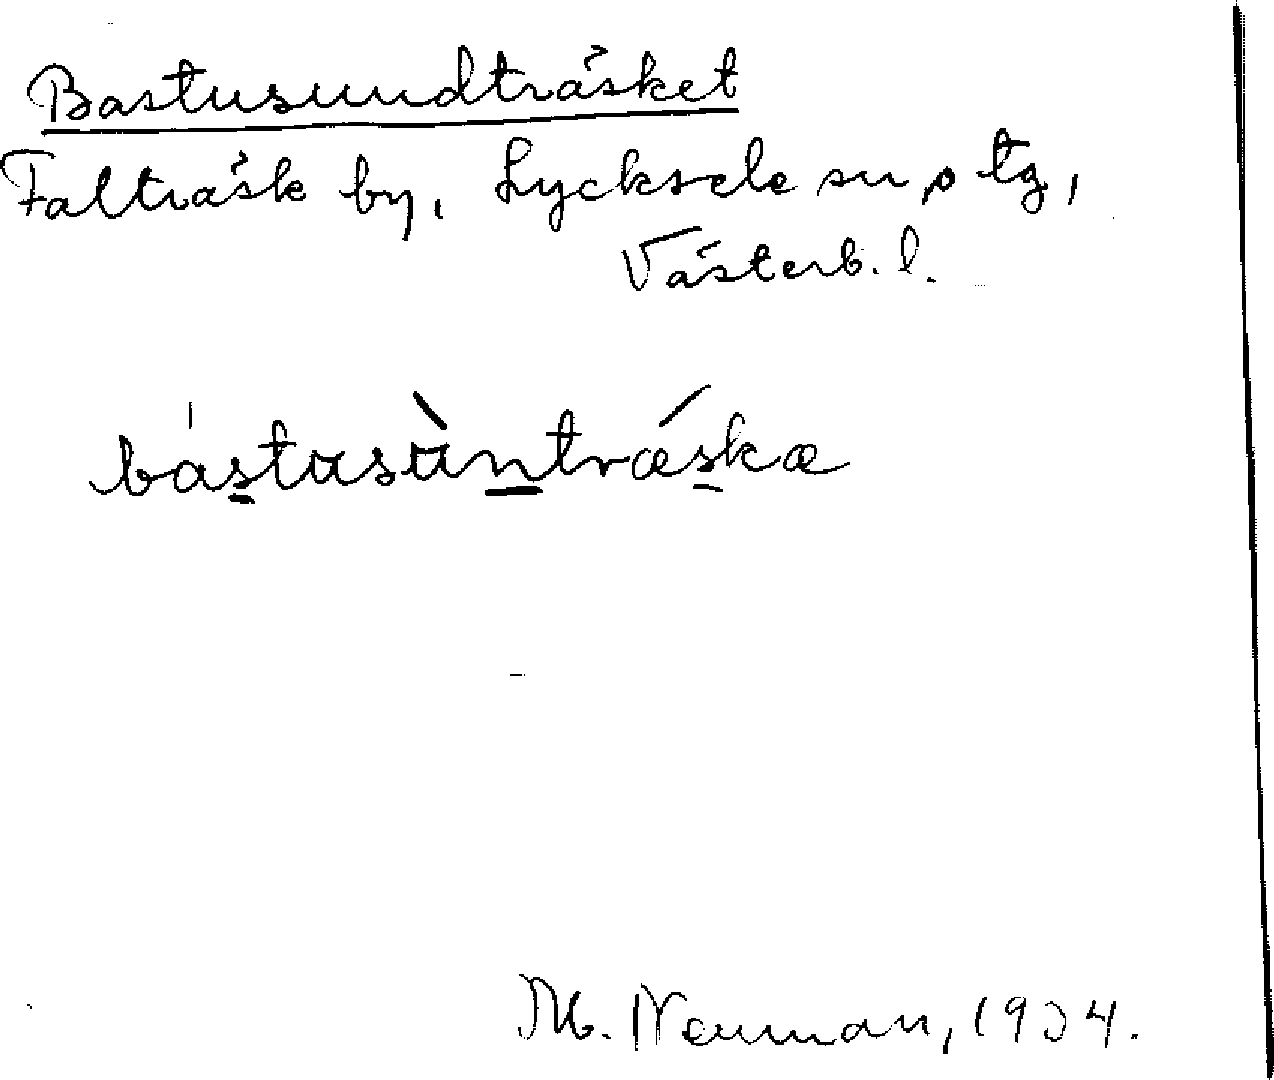 Bastusundträsket
Falträsk by, Lycksele sn o tg,
Västerb. l.
bástusùntrǽskæ
M. Neuman, 1934.